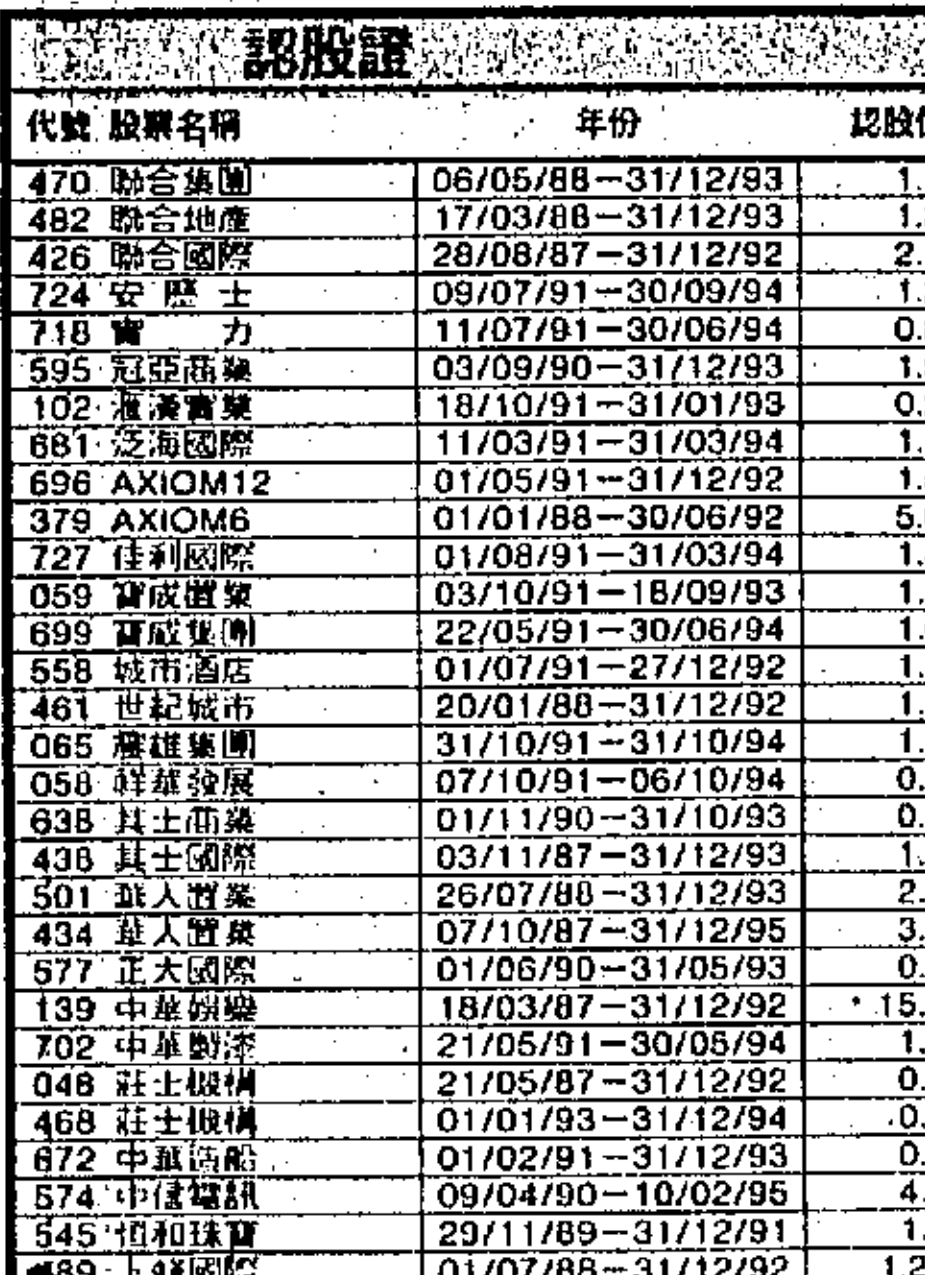 認股證
代號 股票名稱 年份 認股
470 聯合集團 06/05/88－31/12/93 1.
482 聯合地產 17/03/88－31/12/93 1.
426 聯合國際 28/08/87－31/12/92 2.
724 安歷士 09/07/91－30/09/94 1.
718 寶力 11/07/91－30/06/94 0.
595 冠亞商業 03/09/90－31/12/93 1.
102 滙漢實業 18/10/91－31/01/93 0.
681 泛海國際 11/03/91－31/03/94 1.
696 AXIOM12 01/05/91－31/12/92 1.
379 AXIOM6 01/01/88－30/06/92 5.
727 佳利國際 01/08/91－31/03/94 1.
059 寶成置業 03/10/91－18/09/93 1.
699 寶成集團 22/05/91－30/06/94 1.
558 城市酒店 01/07/91－27/12/92 1.
461 世紀城市 20/01/88－31/12/92 1.
065 雄集團 31/10/91－31/10/94 1.
058 祥華發展 07/10/91－06/10/94 0.
638 其士商業 01/11/90－31/10/93 0.
438 其士國際 03/11/87－31/12/93 1.
501 華人置業 26/07/88－31/12/93 2.
434 華人置業 07/10/87－31/12/95 3.
577 正大國際 01/06/90－31/05/93 0.
139 中華娛樂 18/03/87－31/12/92 15.
702 中華製漆 21/05/91－30/05/94 1.
048 莊士機構 21/05/87－31/12/92 0.
468 莊士機構 01/01/93－31/12/94 0.
672 中華造船 01/02/91－31/12/93 0.
574 中信電訊 09/04/90－10/02/95 4.
545 恒和珠寶 29/11/89－31/12/91 1.
489 國際 01/07/88－31/12/92 1.2